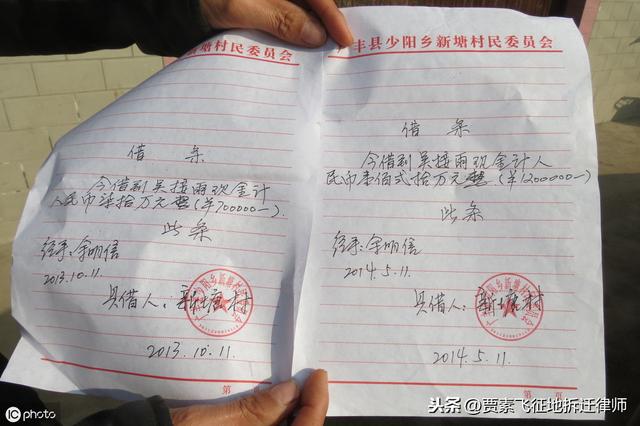 塘村民委员会
借 条
今借到吴接雨现金计
人民币柒拾万元整(¥700000—).
此条
经手:余明信
2013.10.11.
具借人:新塘村
2013.10.11.
第
丰县少阳乡新塘村民委员会
借 条
今借到吴接雨现金计人
民币壹佰弍拾万元整(¥1200000—)
此条
经手:余明信
2014.5.11.
具借人:新塘村
2014.5.11.
第 页
iCphoto
头条@贾素飞征地拆迁律师